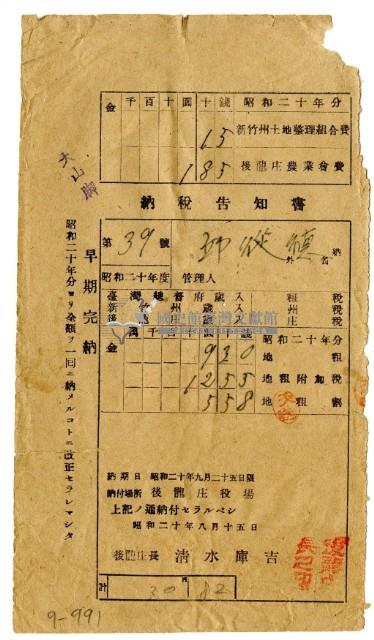 昭和二十年分
金 千 百 十 圓 十 錢
新竹州土地整理組合費
15
後龍庄農業會費
185
納稅告知書
大山脚
早期完納
昭和二十年分ヨリ全額ヲ一回ニ納メルコトニ改正セラレマシタ
第 39 號
外 名 納
昭和二十年度 管理人
臺灣總督府歲入 租稅
新竹州歲入 州稅
後龍庄歲入 庄稅
國史館臺灣文獻館
昭和二十年分
金
地租
930
地租附加稅
1255
地租割
558
納期日 昭和二十年九月二十五日限
納付場所 後龍庄役場
上記ノ通納付セラルベシ
昭和二十年八月十五日
後龍庄長 清水庫吉
計
9-991